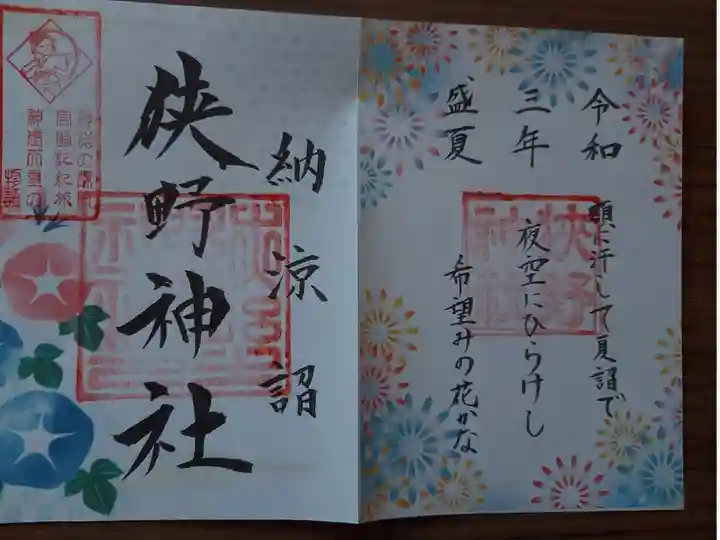 令和
三年
盛夏
頭に汗して夏詣で
夜空にひらけし
希望みの花かな
狭野
神社
納涼詣
狭野神社